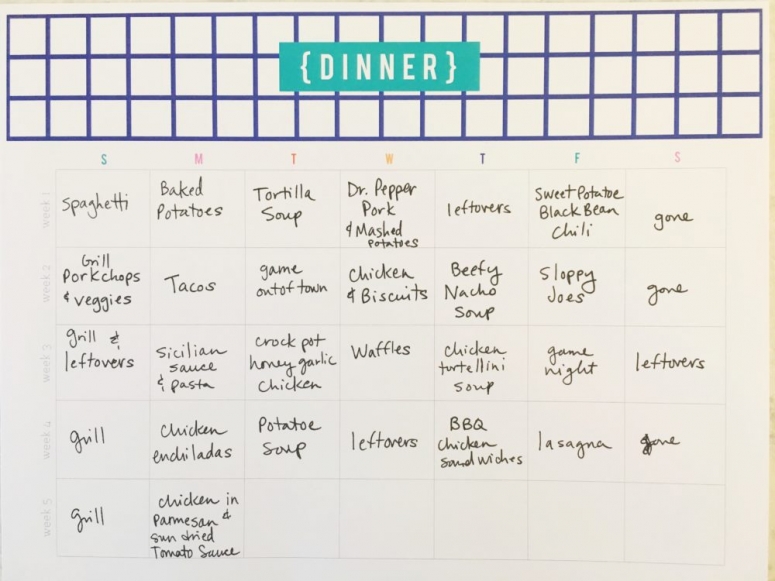 {DINNER}
S M T W T F S
week 1
Spaghetti
Baked
Potatoes
Tortilla
Soup
Dr. Pepper
Pork
& Mashed
Potatoes
leftovers
Sweet Potatoe
Black Bean
Chili
gone
week 2
Grill
Porkchops
& veggies
Tacos
game
out of town
Chicken
& Biscuits
Beefy
Nacho
Soup
Sloppy
Joes
gone
week 3
grill &
leftovers
Sicilian
sauce
& pasta
crock pot
honey garlic
chicken
Waffles
chicken
turtellini
soup
game
night
leftovers
week 4
grill
chicken
enchiladas
Potatoe
Soup
leftovers
BBQ
chicken
sandwiches
lasagna
gone
week 5
grill
chicken in
Parmesan &
sun dried
Tomato Sauce